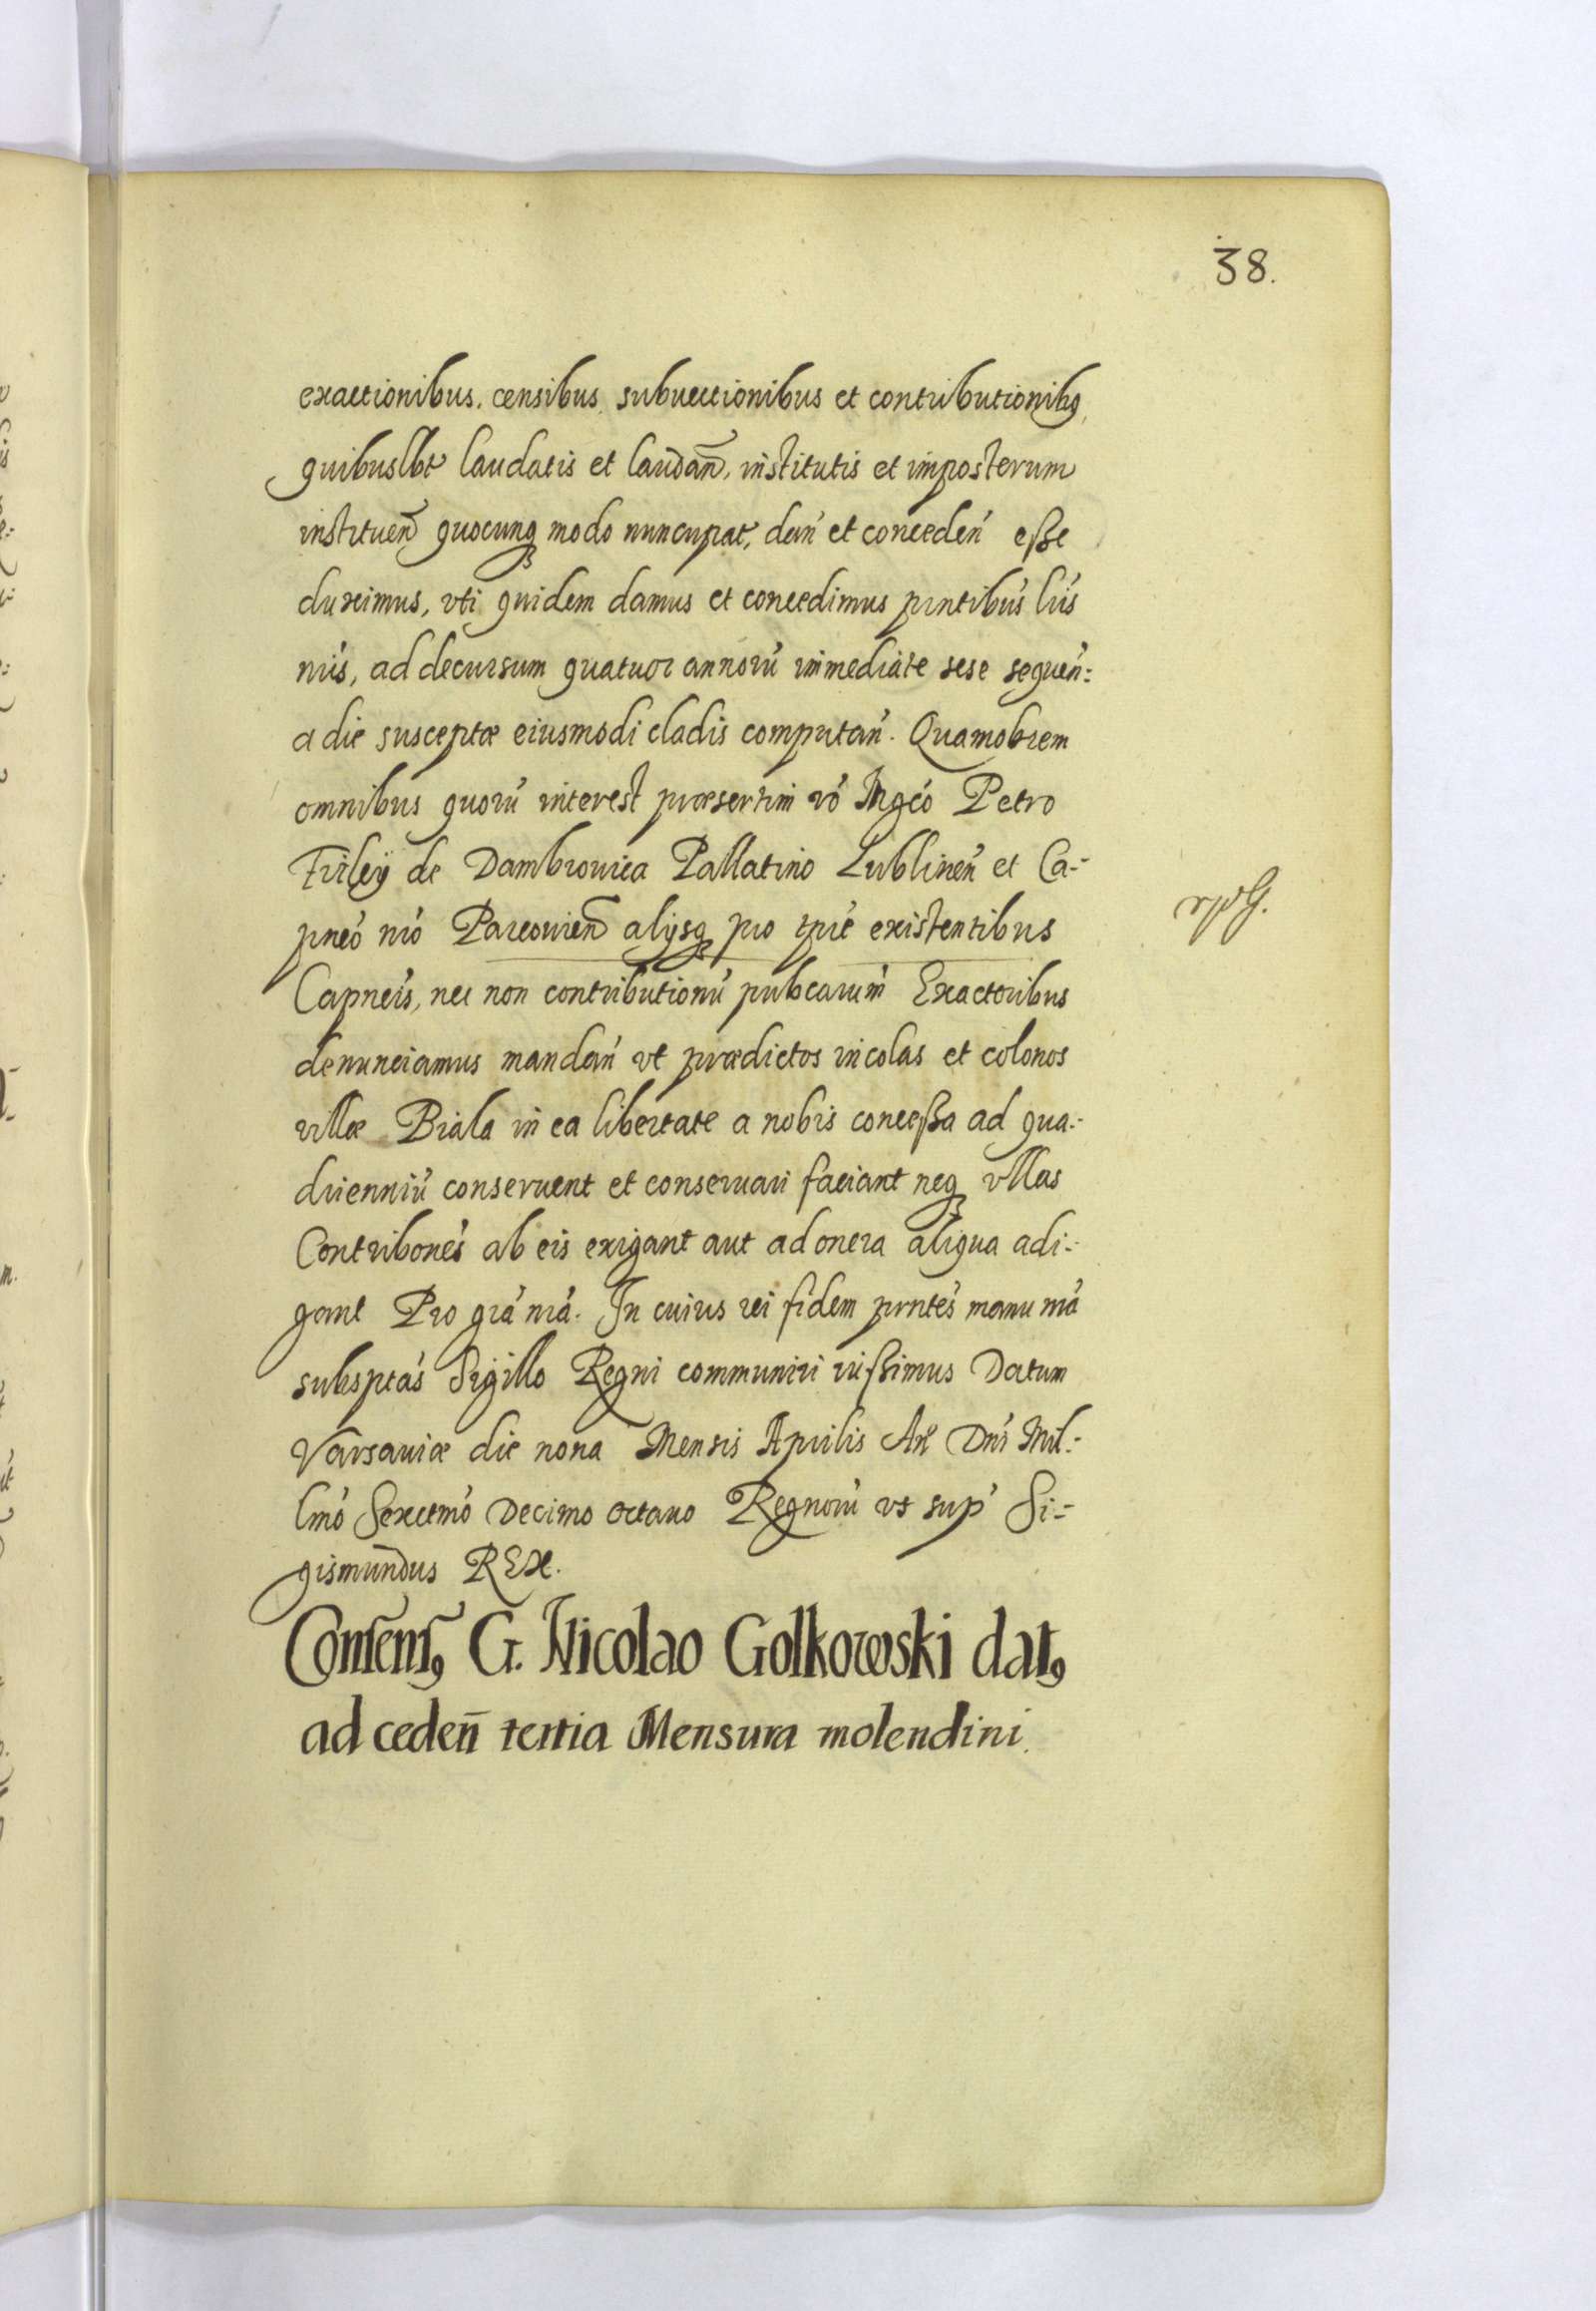 38.
exactionibus, censibus, subuectionibus et contributionibꝯ,
quibuslbt laudatis et laudañ, institutis et imposterum
instituen̄ quocunqꝫ modo nuncupat, dań et conceden̄ eſse
duximus, vti quidem damus et concedimus pn̄tibus lr̄is
nr̄is, ad decursum quatuor annorū immediate sese sequen̄:
a die susceptæ eiusmodi cladis computan̄. Quamobrem
omnibus quorū interest præsertim vō Mgcó Petro
Firleÿ de Dambrowica Pallatino Lublinen̄ et Ca-
pneó nr̄o Parcouien̄ alijsqꝫ pro tpre existentibus
Capneis, nec non contributionū pubcarum Exactoribus
denunciamus mandan̄ vt prædictos incolas et colonos
villæ Biala in ea libertate a nobis conceſsa ad qua-
drienniū conseruent et conseruari faciant neqꝫ vllas
Contribones ab eis exigant aut ad onera aliqua adi-
gant Pro gr̄a nr̄a. In cuius rei fidem pn̄tes manu nr̄a
subsptas Sigillo Regni communiri iuſsimus Datum
Varsauiæ die nona Mensis Aprilis An̄ Dn̄i Mil-
lmo Sexctmo Decimo octauo Regnorū vt sup̄ Si-
gismundus REX.
Consensꝯ G. Nicolao Golkowski datꝯ
ad ceden̄ tertia Mensura molendini.